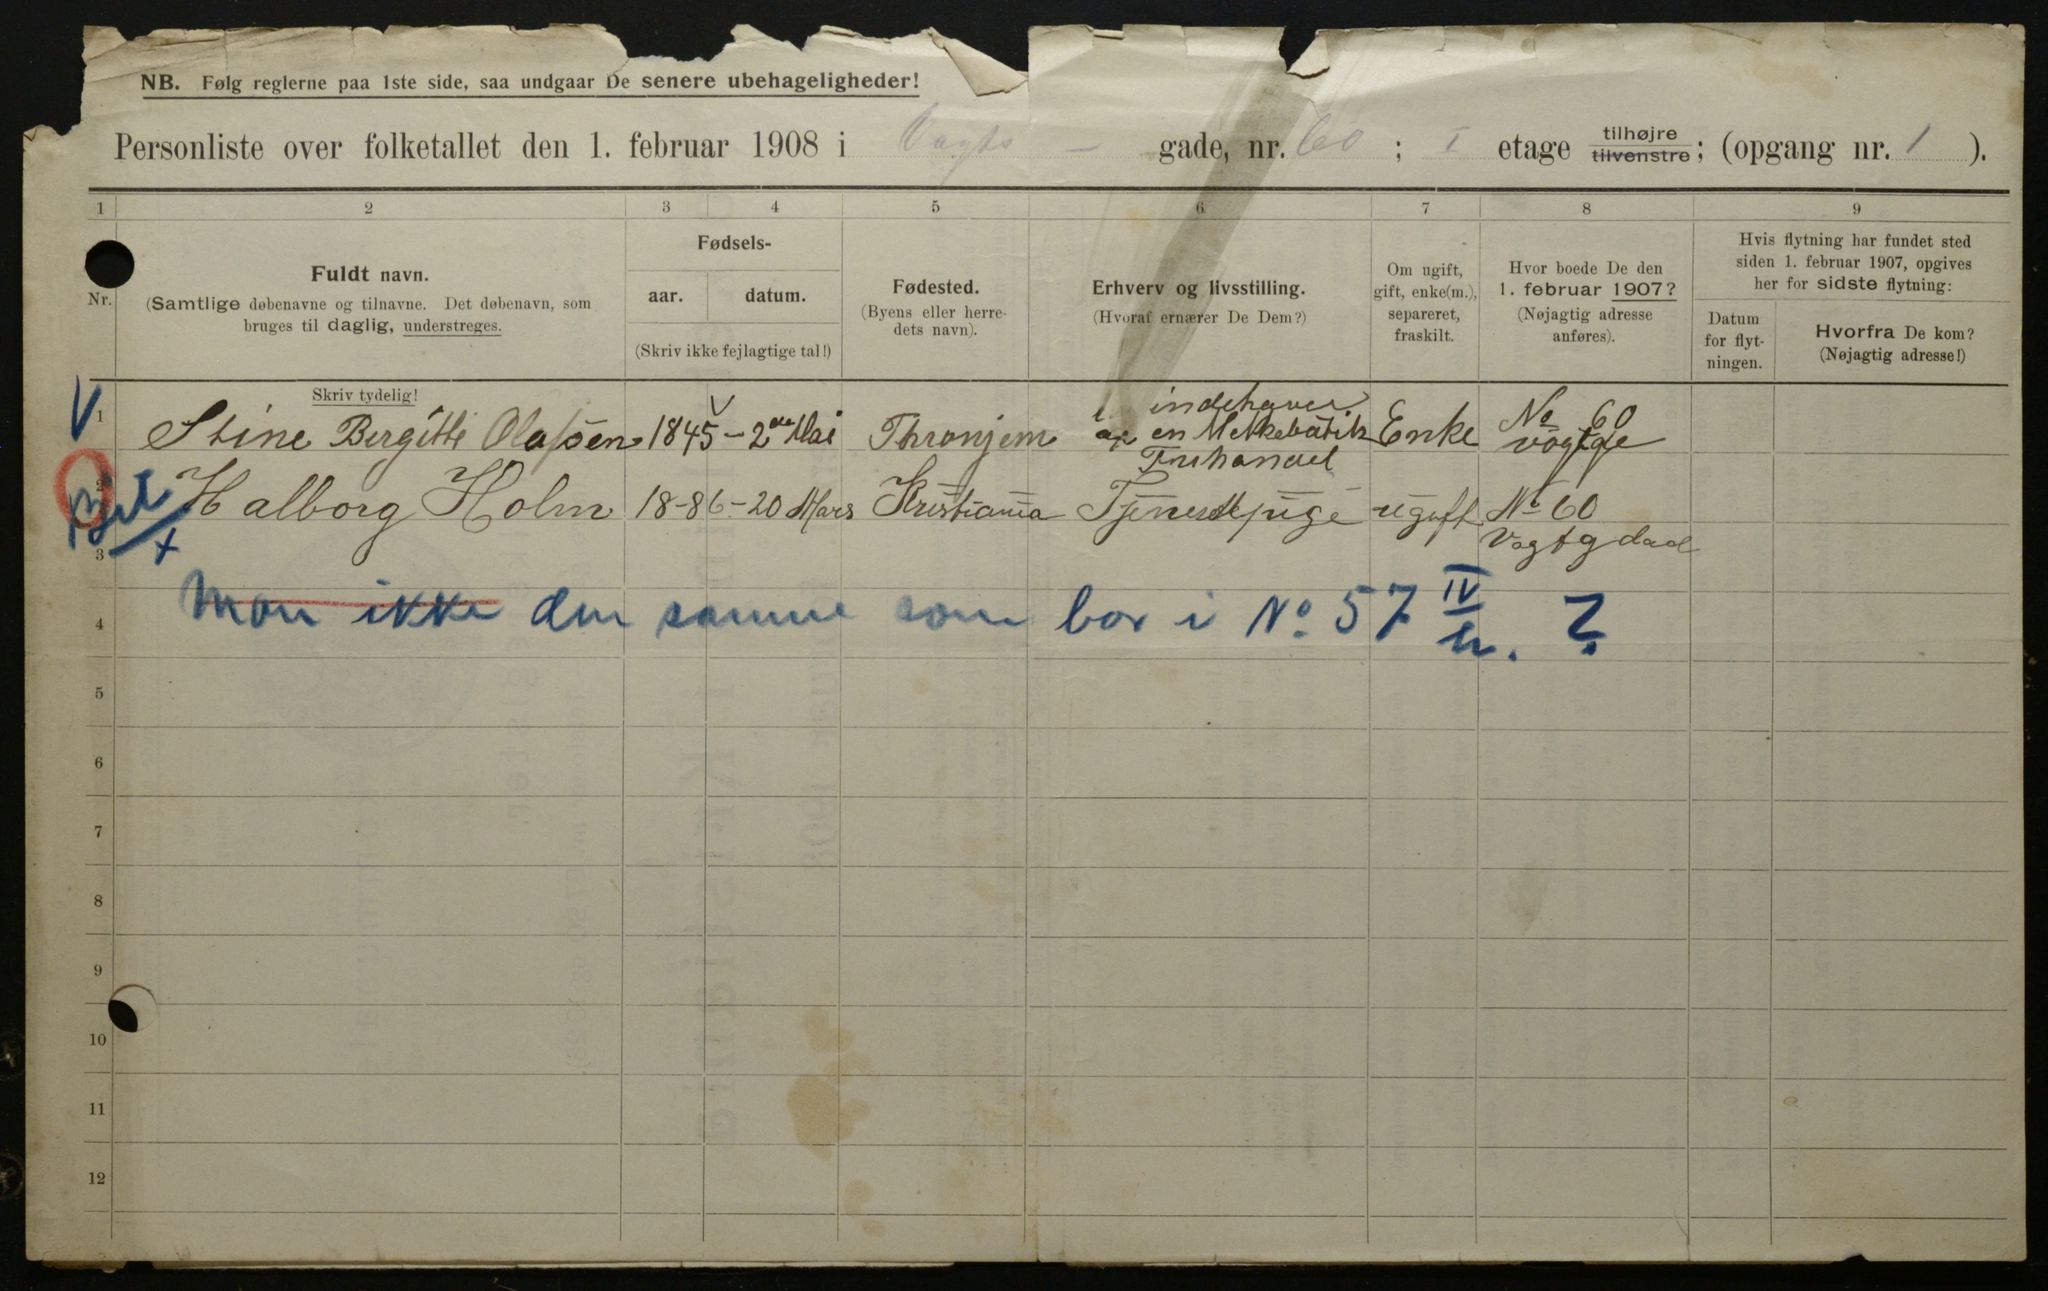 NB. Følg reglerne paa 1ste side, saa undgaar De senere ubehageligheder!
Personliste over folketallet den 1. februar 1908 i Vogts - gade, nr. 60 ; I etage tilhøjre tilvenstre ; (opgang nr. 1 ).
1 2 3 4 5 6 7 8 9
Nr.
Fuldt navn.
(Samtlige døbenavne og tilnavne. Det døbenavn, som
bruges til daglig, understreges.
Skriv tydelig!
Fødsels-
aar. datum.
(Skriv ikke fejlagtige tal!)
Fødested.
(Byens eller herre-
dets navn).
Erhverv og livsstilling.
(Hvoraf ernærer De Dem?)
Om ugift,
gift, enke(m.),
separeret,
fraskilt.
Hvor boede De den
1. februar 1907?
(Nøjagtig adresse
anføres).
Hvis flytning har fundet sted
siden 1. februar 1907, opgives
her for sidste flytning:
Datum
for flyt-
ningen.
Hvorfra De kom?
(Nøjagtig adresse!)
V
1 Stine Bergitte Olafsen 1845 - 2 Mai Thronjem indehaver Enke No 60
en Melkebutik
2 Halborg Holm 18-86-20 Mars Kristiania ugift No 60
3
4 Mon ikke den samme som bor i No 57 IV ?
5
6
7
8
9
10
11
12